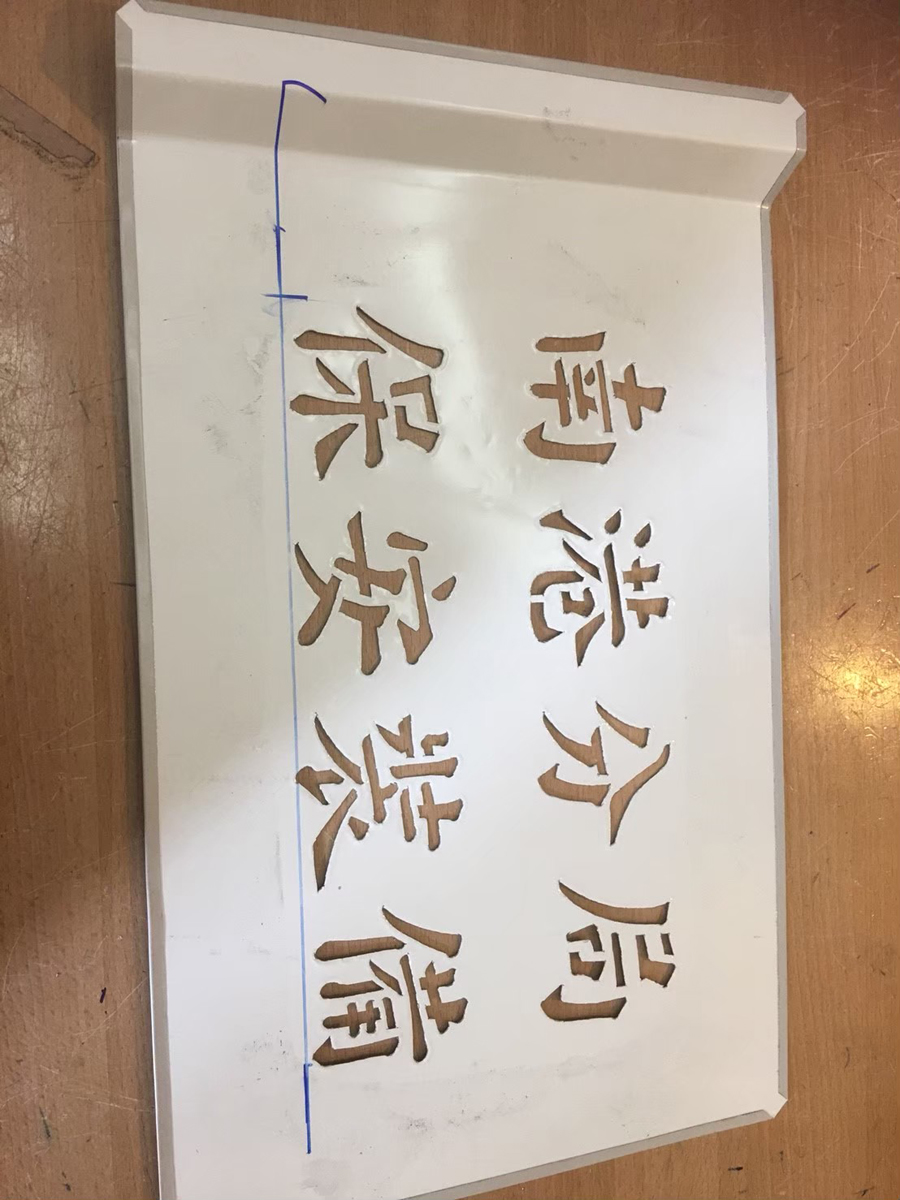 南港分局
保安裝備